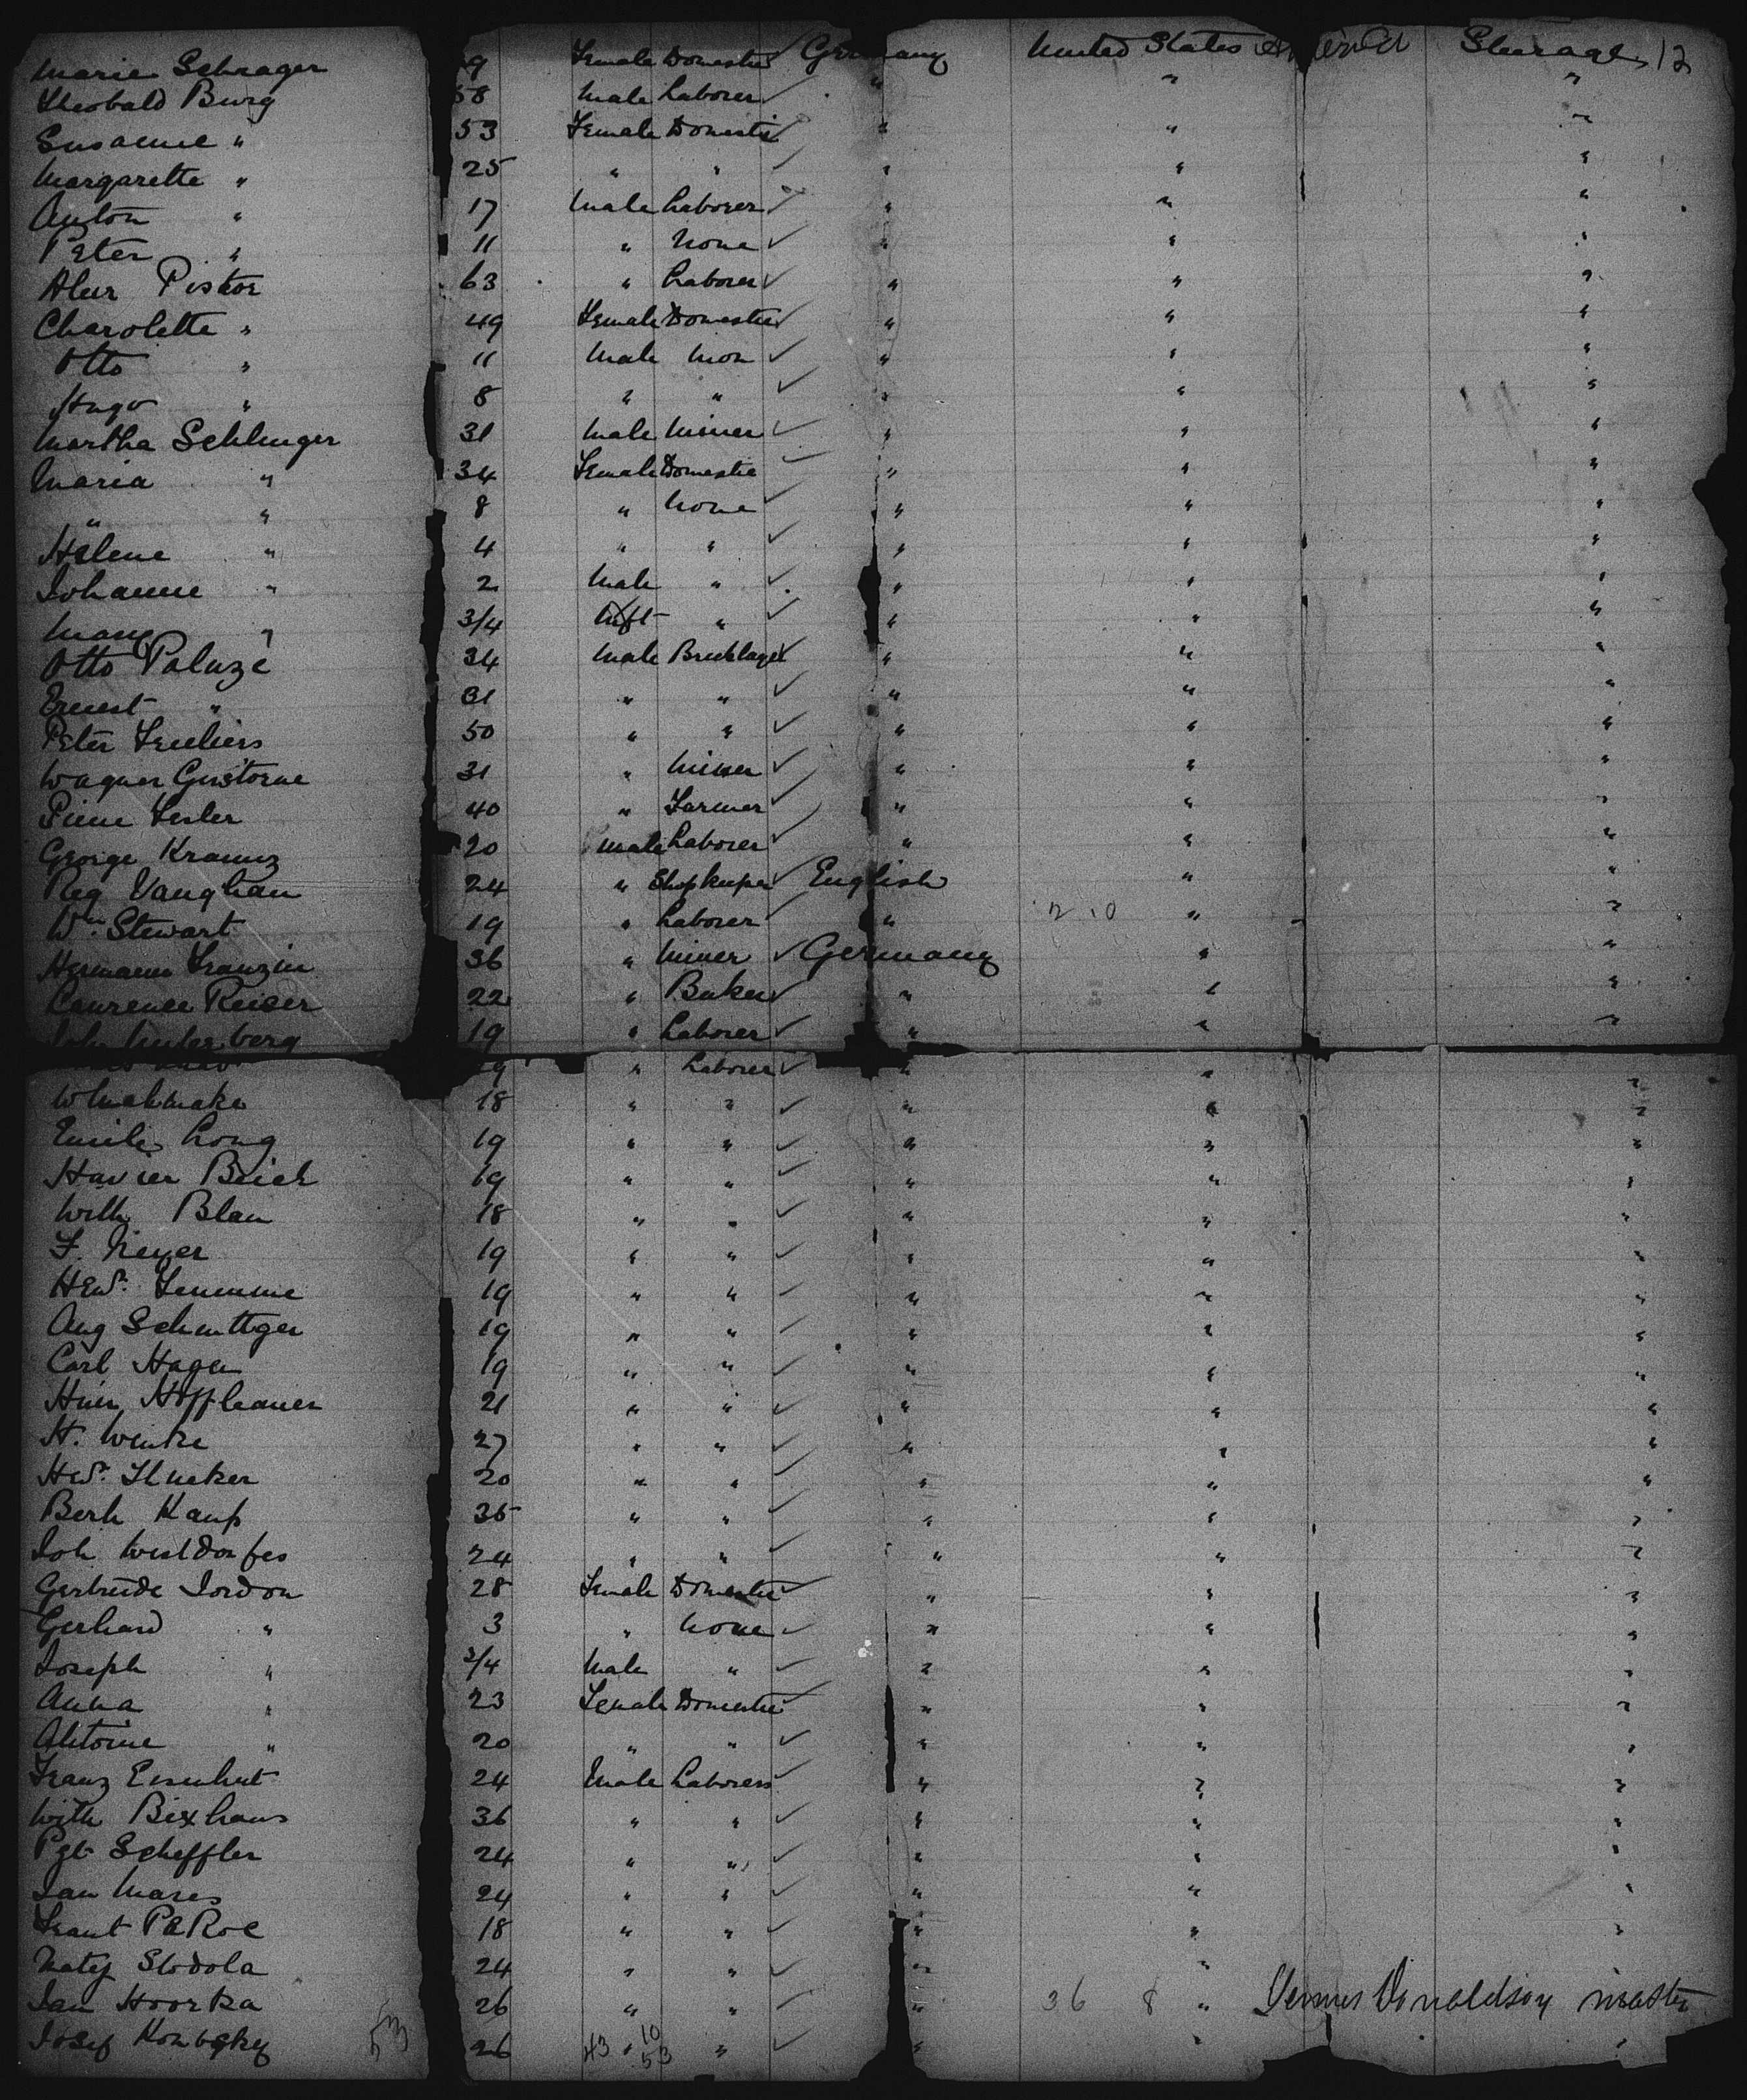 Marie Schrager 9 Female Domestic ✓ Germany United States Steerage 12
Theobald Burg 58 Male Laborer ✓ " " "
Susanne " 53 Female Domestic ✓ " " "
Margarette " 25 " " ✓ " " "
Anton " 17 Male Laborer ✓ " " "
Peter " 11 " None ✓ " " "
Pistor 63 " Laborer ✓ " " "
Charolette " 49 Female Domestic ✓ " " "
Otto " 11 Male Non ✓ " " "
Hugo " 8 " " ✓ " " "
Martha Schlinger 31 Male Miner ✓ " " "
Maria " 34 Female Domestic ✓ " " "
" " 8 " None ✓ " " "
Helene " 4 " " ✓ " " "
Johanne " 2 Male " ✓ " " "
Mary " 3/4 Inft " ✓ " " "
Otto 34 Male Bricklayer ✓ " " "
Ernest " 31 " " ✓ " " "
Peter 50 " " ✓ " " "
Wagner 31 " Miner ✓ " " "
40 " Farmer ✓ " " "
George 20 Male Laborer ✓ " " "
Reg Vaughan 24 " Shopkeeper ✓ English " "
Wm. Stewart 19 " Laborer ✓ " 2 10 " "
Hermann Franzin 36 " Miner ✓ Germany " "
Laurence Reiser 22 " Baker ✓ " " "
John 19 " Laborer ✓ " " "
" Laborer ✓ " " "
18 " " ✓ " " "
Emile Long 19 " " ✓ " " "
19 " " ✓ " " "
Blau 18 " " ✓ " " "
F. Meyer 19 " " ✓ " " "
19 " " ✓ " " "
Aug Schuttger 19 " " ✓ " " "
Carl Hagen 19 " " ✓ " " "
21 " " ✓ " " "
H. Wenke 27 " " ✓ " " "
20 " " ✓ " " "
Berh Kamp 35 " " ✓ " " "
Joh 24 " " ✓ " " "
Gertrude Jordon 28 Female Domestic ✓ " " "
Gerhard " 3 " None ✓ " " "
Joseph " 3/4 Male " ✓ " " "
Anna " 23 Female Domestic ✓ " " "
Antoine " 20 " " ✓ " " "
Franz Eisenhut 24 Male Laborers ✓ " " "
With Bixhaus 36 " " ✓ " " "
Scheffler 24 " " ✓ " " "
Jan Mares 24 " " ✓ " " "
18 " " ✓ " " "
Matej Stodola 24 " " ✓ " "
Jan Hvorka 26 " " ✓ " 36 8 " Donaldson master
Josef 53 26 43 " 10 53 " ✓ " " "